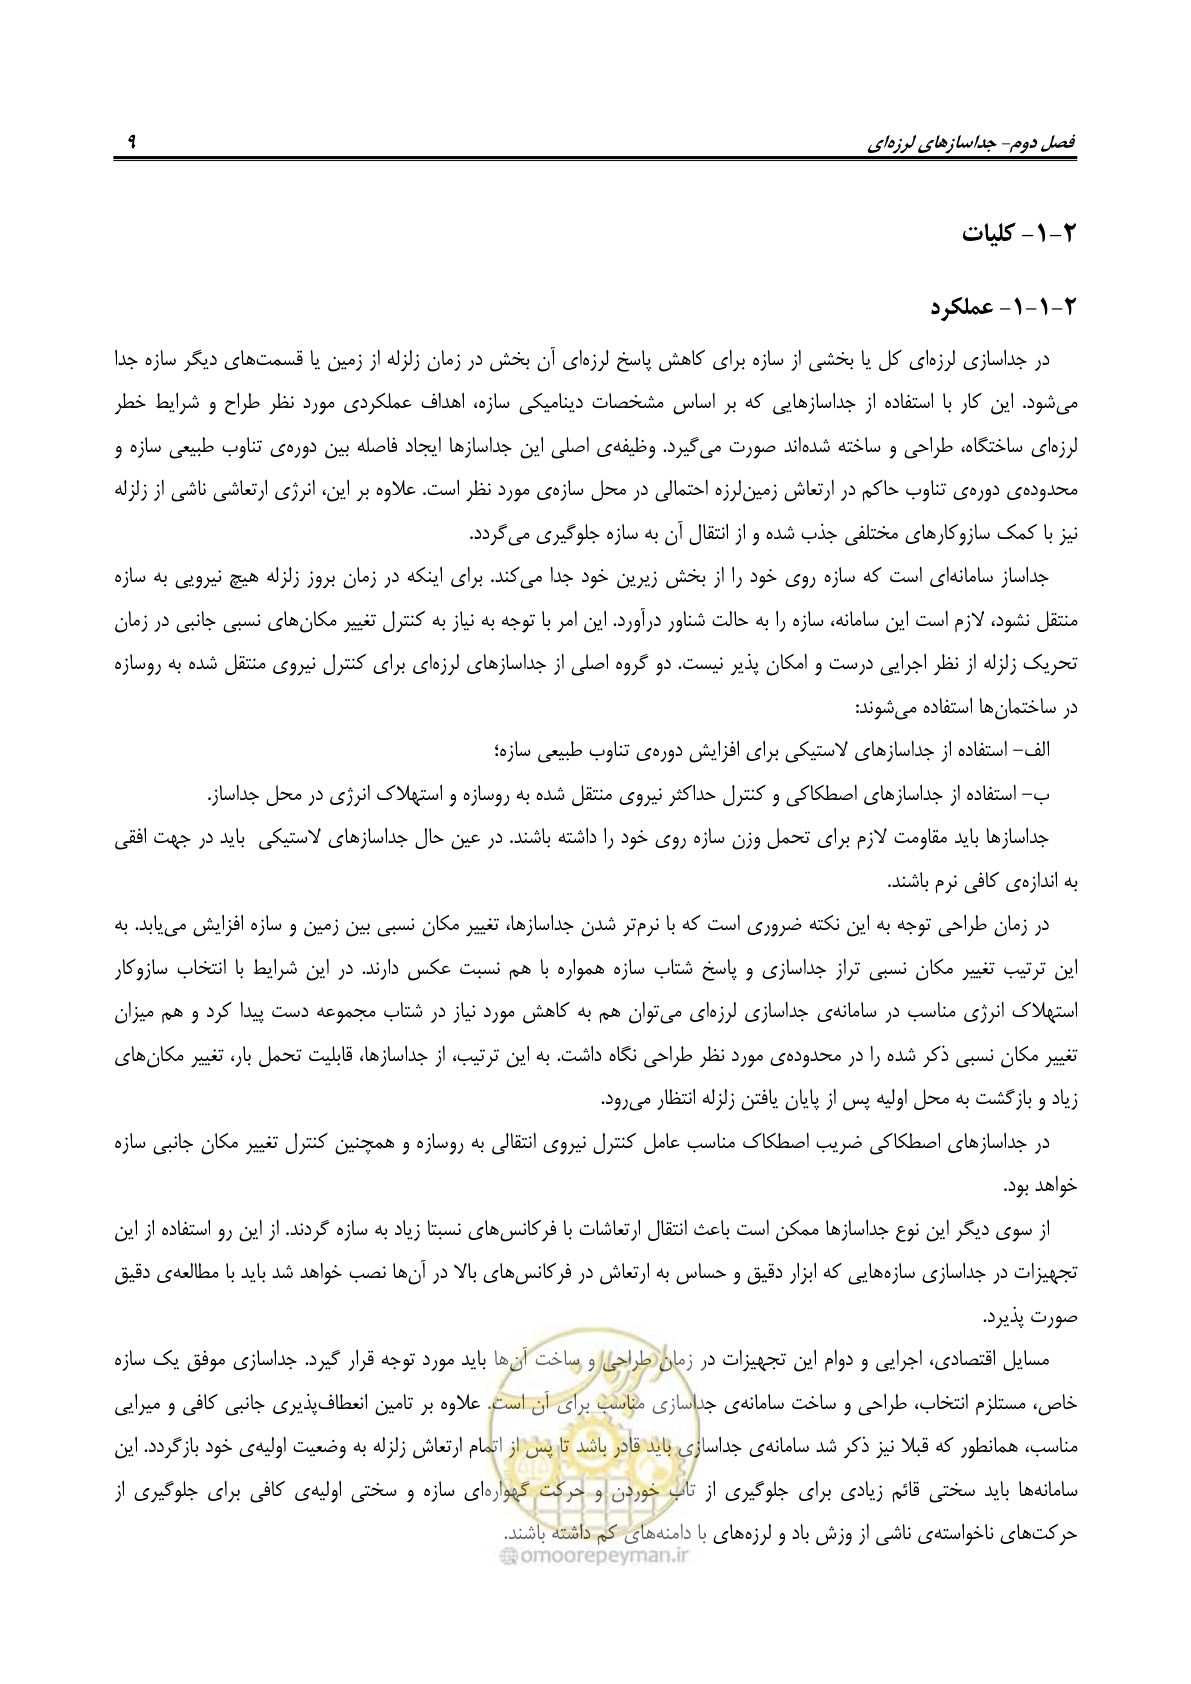 فصل دوم- جداسازهای لرزه‌ای ۹
۲-۱- کلیات
۲-۱-۱- عملکرد
در جداسازی لرزه‌ای کل یا بخشی از سازه برای کاهش پاسخ لرزه‌ای آن بخش در زمان زلزله از زمین یا قسمت‌های دیگر سازه جدا
می‌شود. این کار با استفاده از جداسازهایی که بر اساس مشخصات دینامیکی سازه، اهداف عملکردی مورد نظر طراح و شرایط خطر
لرزه‌ای ساختگاه، طراحی و ساخته شده‌اند صورت می‌گیرد. وظیفه‌ی اصلی این جداسازها ایجاد فاصله بین دوره‌ی تناوب طبیعی سازه و
محدوده‌ی دوره‌ی تناوب حاکم در ارتعاش زمین‌لرزه احتمالی در محل سازه‌ی مورد نظر است. علاوه بر این، انرژی ارتعاشی ناشی از زلزله
نیز با کمک سازوکارهای مختلفی جذب شده و از انتقال آن به سازه جلوگیری می‌گردد.
جداساز سامانه‌ای است که سازه روی خود را از بخش زیرین خود جدا می‌کند. برای اینکه در زمان بروز زلزله هیچ نیرویی به سازه
منتقل نشود، لازم است این سامانه، سازه را به حالت شناور درآورد. این امر با توجه به نیاز به کنترل تغییر مکان‌های نسبی جانبی در زمان
تحریک زلزله از نظر اجرایی درست و امکان پذیر نیست. دو گروه اصلی از جداسازهای لرزه‌ای برای کنترل نیروی منتقل شده به روسازه
در ساختمان‌ها استفاده می‌شوند:
الف- استفاده از جداسازهای لاستیکی برای افزایش دوره‌ی تناوب طبیعی سازه؛
ب- استفاده از جداسازهای اصطکاکی و کنترل حداکثر نیروی منتقل شده به روسازه و استهلاک انرژی در محل جداساز.
جداسازها باید مقاومت لازم برای تحمل وزن سازه روی خود را داشته باشند. در عین حال جداسازهای لاستیکی باید در جهت افقی
به اندازه‌ی کافی نرم باشند.
در زمان طراحی توجه به این نکته ضروری است که با نرم‌تر شدن جداسازها، تغییر مکان نسبی بین زمین و سازه افزایش می‌یابد. به
این ترتیب تغییر مکان نسبی تراز جداسازی و پاسخ شتاب سازه همواره با هم نسبت عکس دارند. در این شرایط با انتخاب سازوکار
استهلاک انرژی مناسب در سامانه‌ی جداسازی لرزه‌ای می‌توان هم به کاهش مورد نیاز در شتاب مجموعه دست پیدا کرد و هم میزان
تغییر مکان نسبی ذکر شده را در محدوده‌ی مورد نظر طراحی نگاه داشت. به این ترتیب، از جداسازها، قابلیت تحمل بار، تغییر مکان‌های
زیاد و بازگشت به محل اولیه پس از پایان یافتن زلزله انتظار می‌رود.
در جداسازهای اصطکاکی ضریب اصطکاک مناسب عامل کنترل نیروی انتقالی به روسازه و همچنین کنترل تغییر مکان جانبی سازه
خواهد بود.
از سوی دیگر این نوع جداسازها ممکن است باعث انتقال ارتعاشات با فرکانس‌های نسبتا زیاد به سازه گردند. از این رو استفاده از این
تجهیزات در جداسازی سازه‌هایی که ابزار دقیق و حساس به ارتعاش در فرکانس‌های بالا در آن‌ها نصب خواهد شد باید با مطالعه‌ی دقیق
صورت پذیرد.
مسایل اقتصادی، اجرایی و دوام این تجهیزات در زمان طراحی و ساخت آن‌ها باید مورد توجه قرار گیرد. جداسازی موفق یک سازه
خاص، مستلزم انتخاب، طراحی و ساخت سامانه‌ی جداسازی مناسب برای آن است. علاوه بر تامین انعطاف‌پذیری جانبی کافی و میرایی
مناسب، همانطور که قبلا نیز ذکر شد سامانه‌ی جداسازی باید قادر باشد تا پس از اتمام ارتعاش زلزله به وضعیت اولیه‌ی خود بازگردد. این
سامانه‌ها باید سختی قائم زیادی برای جلوگیری از تاب خوردن و حرکت گهواره‌ای سازه و سختی اولیه‌ی کافی برای جلوگیری از
حرکت‌های ناخواسته‌ی ناشی از وزش باد و لرزه‌های با دامنه‌های کم داشته باشند.
@omoorepeyman.ir